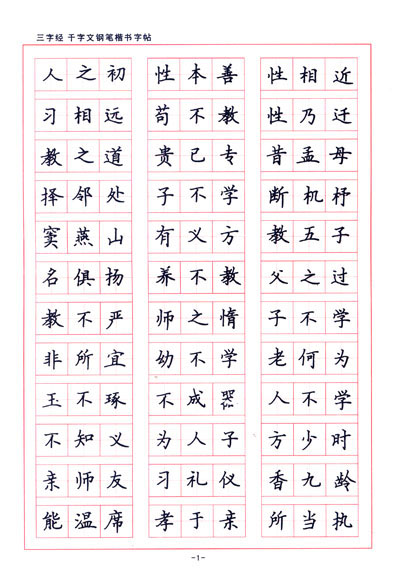 三字经 千字文钢笔楷书字帖
人之初 性本善 性相近
习相远 苟不教 性乃迁
教之道 贵已专 昔孟母
择邻处 子不学 断机杼
窦燕山 有义方 教五子
名俱扬 养不教 父之过
教不严 师之惰 子不学
非所宜 幼不学 老何为
玉不琢 不成器 人不学
不知义 为人子 方少时
亲师友 习礼仪 香九龄
能温席 孝于亲 所当执
-1-